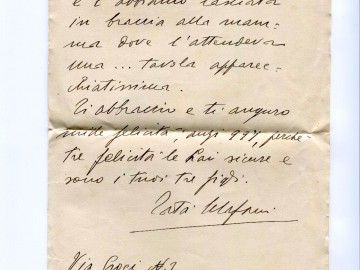 e l'abbiamo lasciata
in braccia alla mam-
ma dove l'attendeva
una ... tavola apparec-
chiatissima.
Ti abbraccio e ti auguro
mille felicità, anzi 997, perchè
tre felicità le hai sicure e
sono i tuoi tre figli.
Tatà
Via Croci N. 2